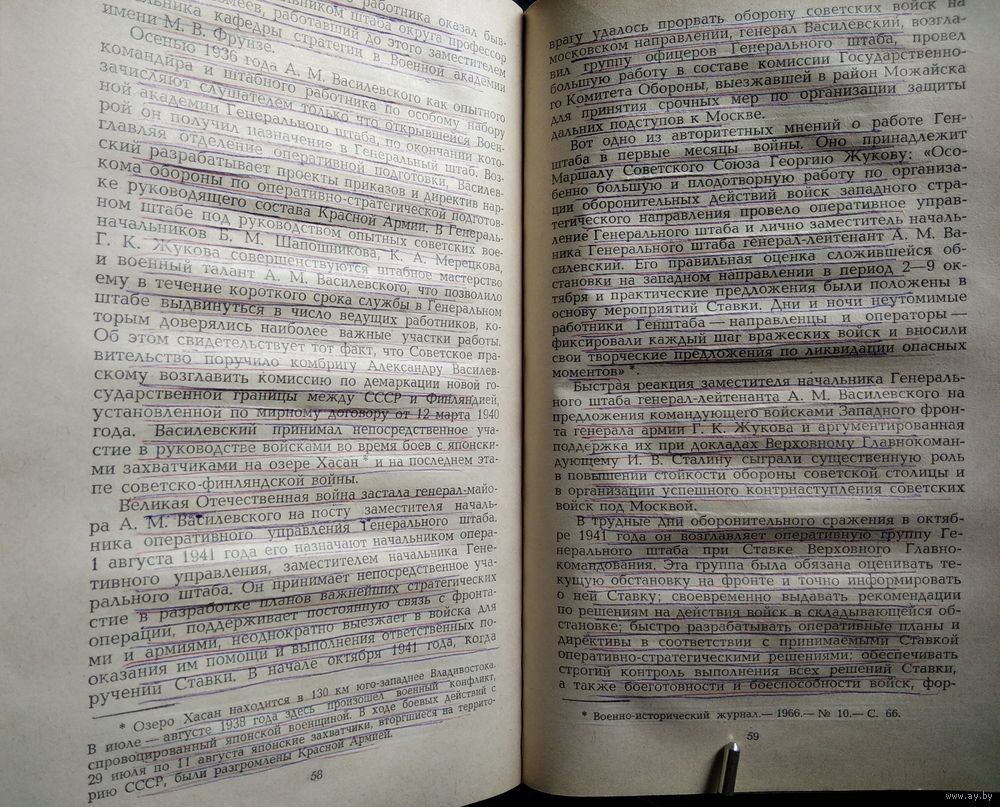 работника оказал быв-
льником штаба округа профессор
меев, работавший до этого заместителем
льника кафедры стратегии в Военной академии
имени М. В. Фрунзе.
Осенью 1936 года А. М. Василевского как опытного
командира и штабного работника по особому набору
зачисляют слушателем только что открывшейся Воен-
ной академии Генерального штаба, по окончании кото-
рой он получил назначение в Генеральный штаб. Воз-
главляя отделение оперативной подготовки, Василев-
ский разрабатывает проекты приказов и директив нар-
кома обороны по оперативно-стратегической подготов-
ке руководящего состава Красной Армии. В Генераль-
ном штабе под руководством опытных советских вое-
начальников Б. М. Шапошникова, К. А. Мерецкова,
Г. К. Жукова совершенствуются штабное мастерство
и военный талант А. М. Василевского, что позволило
ему в течение короткого срока службы в Генеральном
штабе выдвинуться в число ведущих работников, ко-
торым доверялись наиболее важные участки работы.
Об этом свидетельствует тот факт, что Советское пра-
вительство поручило комбригу Александру Василев-
скому возглавить комиссию по демаркации новой го-
сударственной границы между СССР и Финляндией,
установленной по мирному договору от 12 марта 1940
года. Василевский принимал непосредственное уча-
стие в руководстве войсками во время боев с японски-
ми захватчиками на озере Хасан * и на последнем эта-
пе советско-финляндской войны.
Великая Отечественная война застала генерал-майо-
ра А. М. Василевского на посту заместителя началь-
ника оперативного управления Генерального штаба.
1 августа 1941 года его назначают начальником опера-
тивного управления, заместителем начальника Гене-
рального штаба. Он принимает непосредственное уча-
стие в разработке планов важнейших стратегических
операции, поддерживает постоянную связь с фронта-
ми и армиями, неоднократно выезжает в войска для
оказания им помощи и выполнения ответственных по-
ручений Ставки. В начале октября 1941 года, когда
* Озеро Хасан находится в 130 км юго-западнее Владивостока.
В июле — августе 1938 года здесь произошел военный конфликт,
спровоцированный японской военщиной. В ходе боевых действий с
29 июля по 11 августа японские захватчики, вторгшиеся на террито-
рию СССР, были разгромлены Красной Армией.
58
врагу удалось прорвать оборону советских войск на
московском направлении, генерал Василевский, возгла-
вил группу офицеров Генерального штаба, провел
большую работу в составе комиссии Государственно-
го Комитета Обороны, выезжавшей в район Можайска
для принятия срочных мер по организации защиты
дальних подступов к Москве.
Вот одно из авторитетных мнений о работе Ген-
штаба в первые месяцы войны. Оно принадлежит
Маршалу Советского Союза Георгию Жукову: «Осо-
бенно большую и плодотворную работу по организа-
ции оборонительных действий войск западного стра-
тегического направления провело оперативное управ-
ление Генерального штаба и лично заместитель началь-
ника Генерального штаба генерал-лейтенант А. М. Ва-
силевский. Его правильная оценка сложившейся об-
становки на западном направлении в период 2—9 ок-
тября и практические предложения были положены в
основу мероприятий Ставки. Дни и ночи неутомимые
работники Генштаба — направленцы и операторы —
фиксировали каждый шаг вражеских войск и вносили
свои творческие предложения по ликвидации опасных
моментов» *.
Быстрая реакция заместителя начальника Генераль-
ного штаба генерал-лейтенанта А. М. Василевского на
предложения командующего войсками Западного фрон-
та генерала армии Г. К. Жукова и аргументированная
поддержка их при докладах Верховному Главнокоман-
дующему И. В. Сталину сыграли существенную роль
в повышении стойкости обороны советской столицы и
в организации успешного контрнаступления советских
войск под Москвой.
В трудные дни оборонительного сражения в октяб-
ре 1941 года он возглавляет оперативную группу Ге-
нерального штаба при Ставке Верховного Главно-
командования. Эта группа была обязана оценивать те-
кущую обстановку на фронте и точно информировать
о ней Ставку; своевременно выдавать рекомендации
по решениям на действия войск в складывающейся об-
становке; быстро разрабатывать оперативные планы и
директивы в соответствии с принимаемыми Ставкой
оперативно-стратегическими решениями; обеспечивать
строгий контроль выполнения всех решений Ставки,
а также боеготовности и боеспособности войск, фор-
* Военно-исторический журнал.— 1966.— № 10.— С. 66.
59
www.ay.by